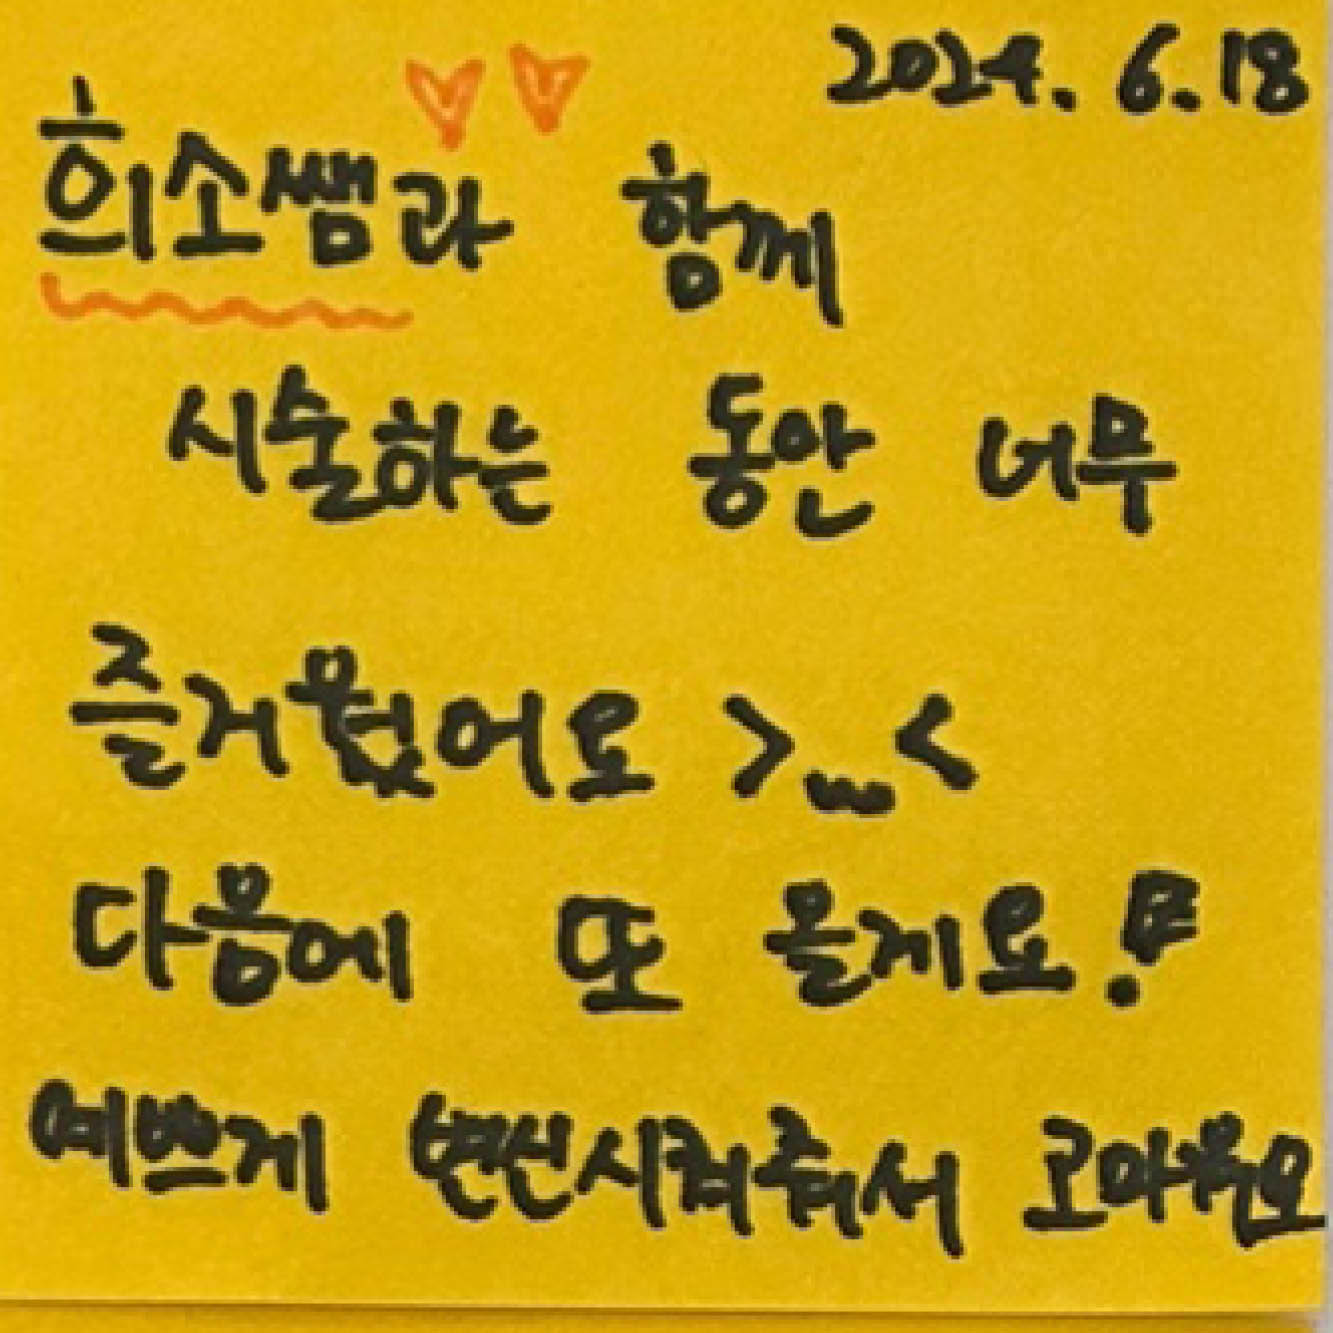 2024. 6.18
희소쌤과 함께
시술하는 동안 너무
즐거웠어요 >...<
다음에 또 올게요!
예쁘게 변신시켜줘서 고마워요